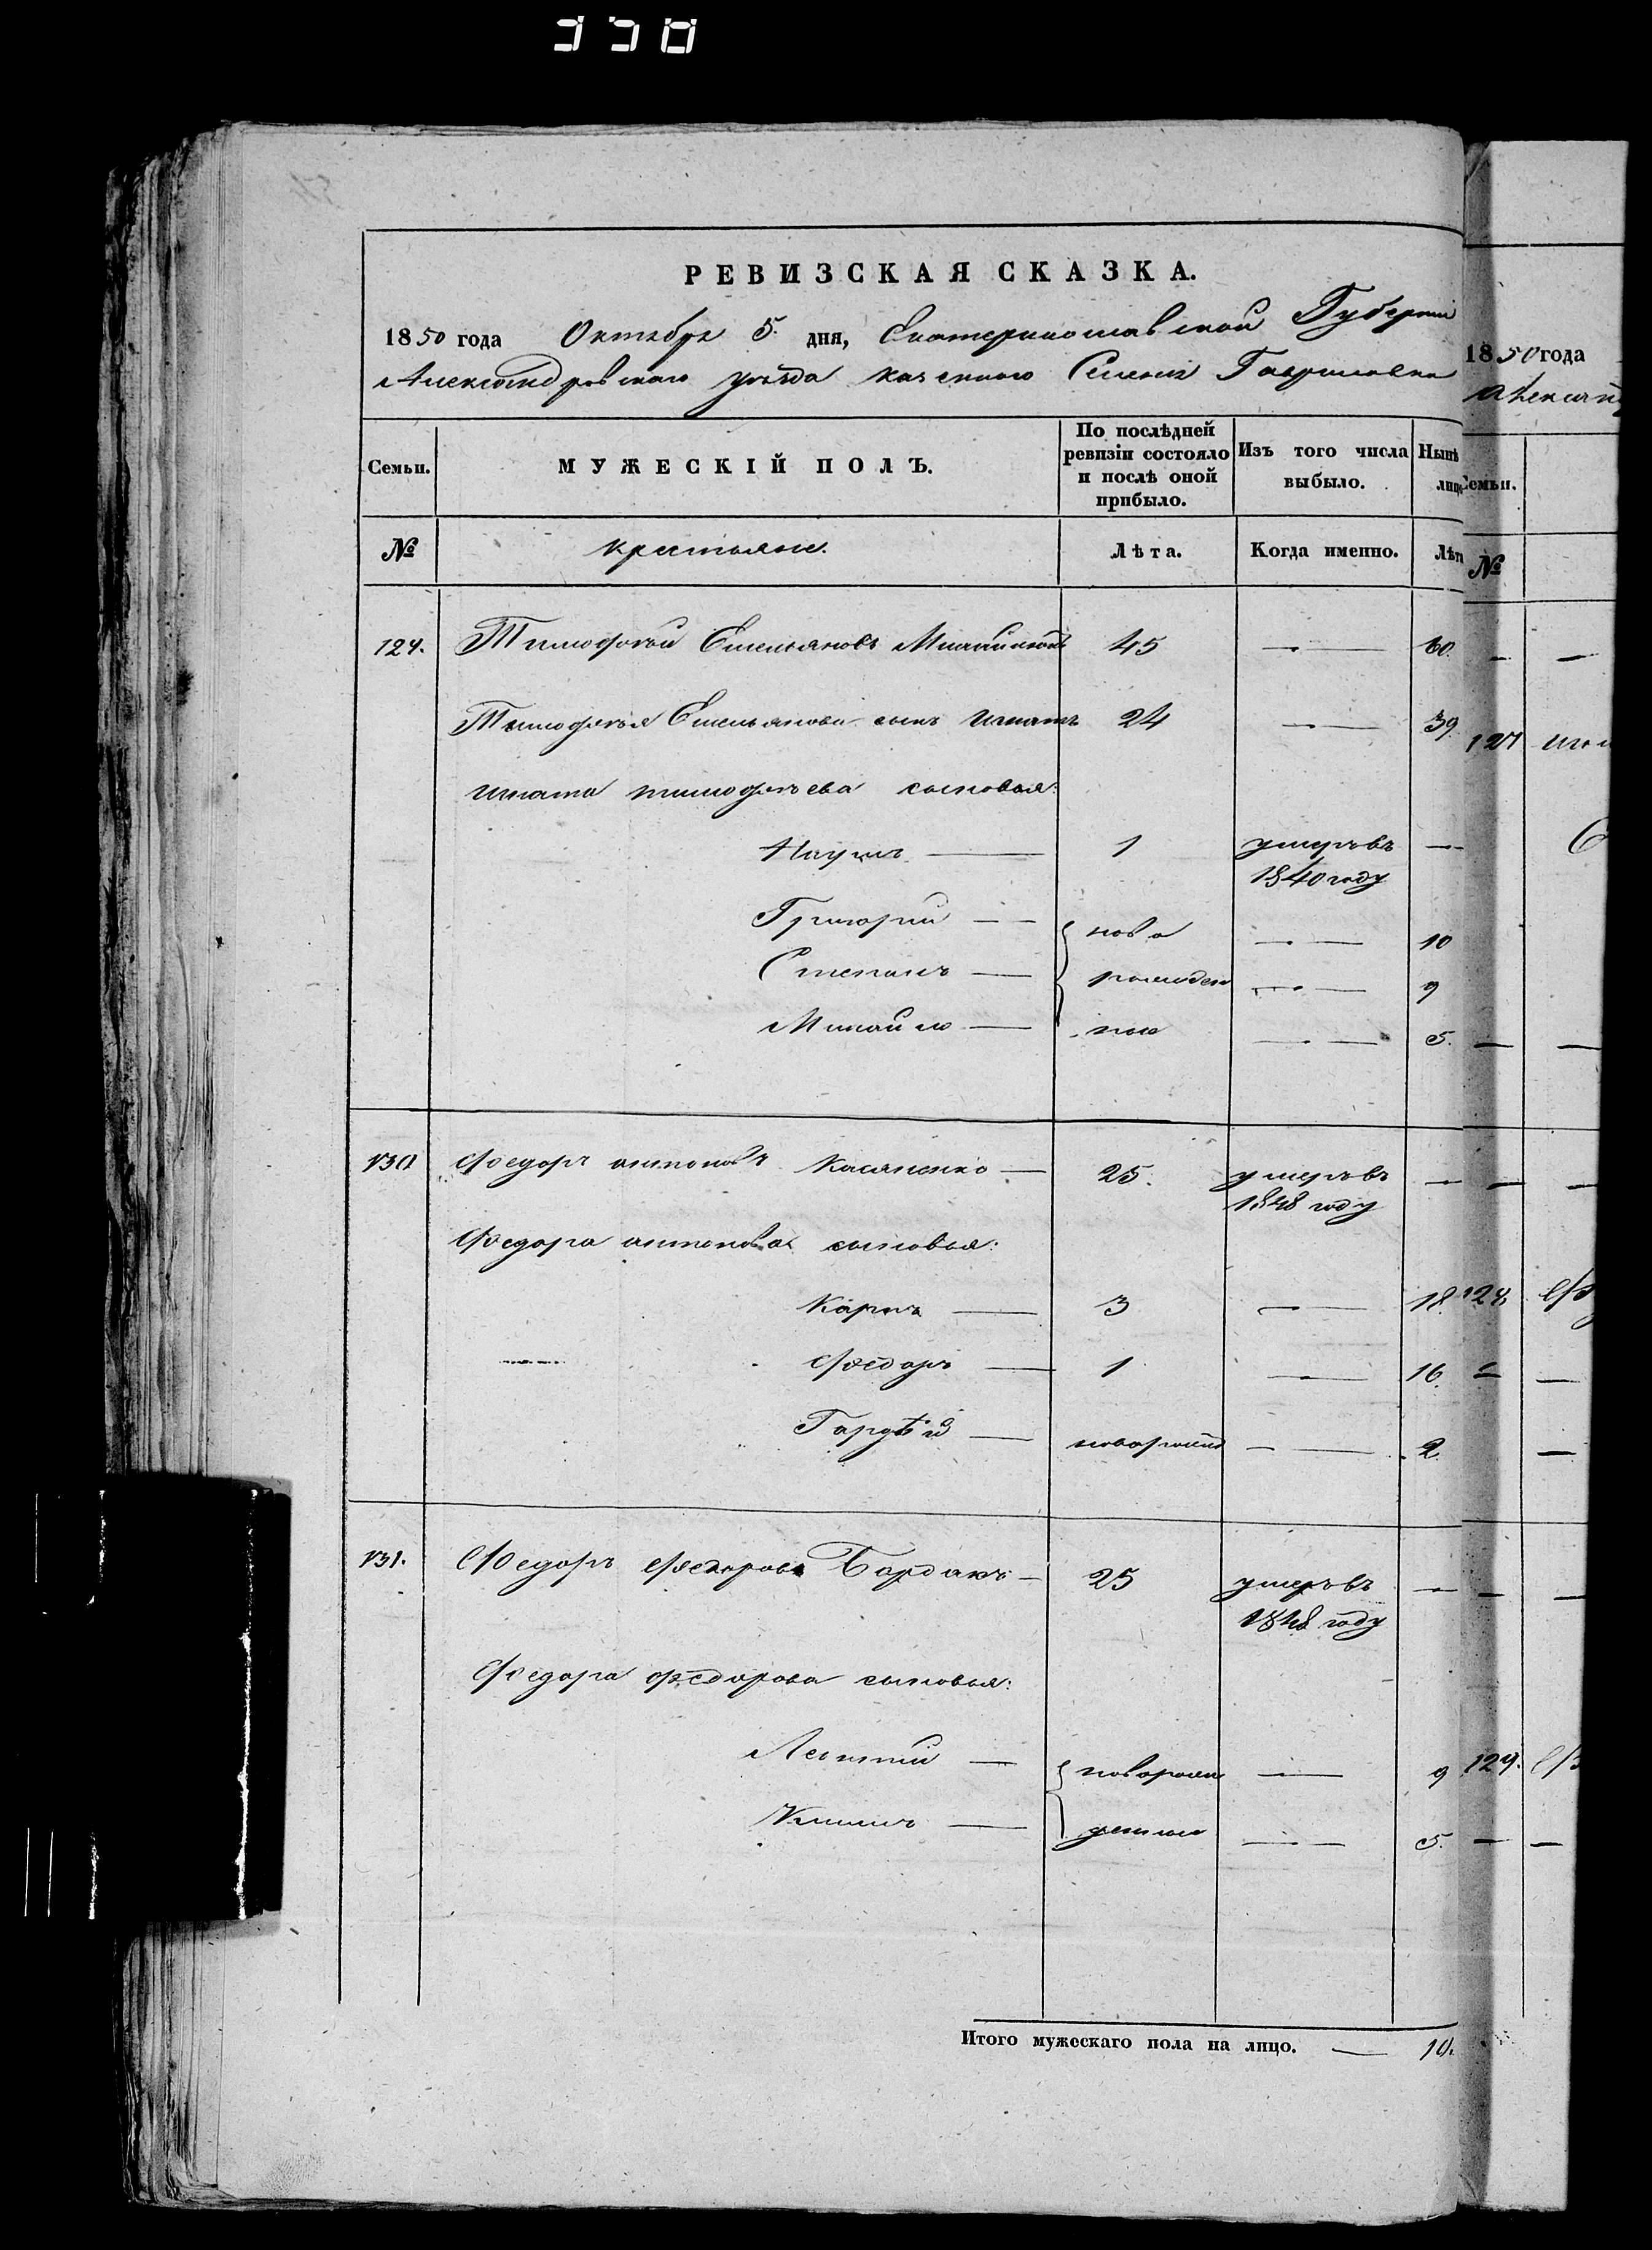 338
РЕВИЗСКАЯ СКАЗКА.
1850 года Октября 5 дня, Екатеринославской Губерніи
Александровскаго уѣзда казеннаго Селенія Гавриловка
Семьи. МУЖЕСКІЙ ПОЛЪ. По послѣдней ревизіи состояло и послѣ оной прибыло. Изъ того числа выбыло. Нынѣ лицо
№ крестьяне. Лѣта. Когда именно. Лѣта
124. Тимофѣй Емельяновъ 45 — 60.
Тимофѣя Емельянова сынъ Игнатъ 24 — 39.
Игната тимофѣева сыновья:
Наумъ — 1 умеръ въ —
1840 году
Григорий — ново — 10
Степанъ — рожден — 9
Михайло — ные — 5.
130 Федоръ антоновъ Касяненко — 25. умеръ въ —
1848 году
Федора антонова сыновья:
Карпъ — 3 — 18.
Федоръ — 1 — 16.
Гордѣй — новорожд — 2
131. Федоръ Федоровъ Бордакъ — 25 умеръ въ —
1848 году
Федора федорова сыновья:
Леонтій — новорож — 9
Климъ — денные — 5.
Итого мужескаго пола на лицо. — 10.
1850 года
Семьи.
№
127
128
129.